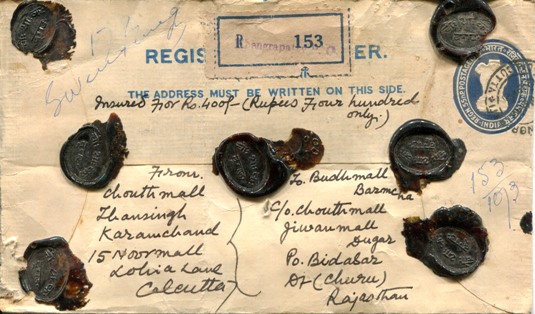 R 153
REGIS ER.
THE ADDRESS MUST BE WRITTEN ON THIS SIDE.
Insured For Rs. 400/- (Rupees Four hundred
only.)
From.
Chouthmall
Thansingh
Karamchand
15 Noormall
Lohia Lane
Calcutta
To. Budhmall
C/o. Chouthmall
Jiwanmall
Dugar
Po. Bidasar
Dt (Churu)
Rajasthan
153
10/3